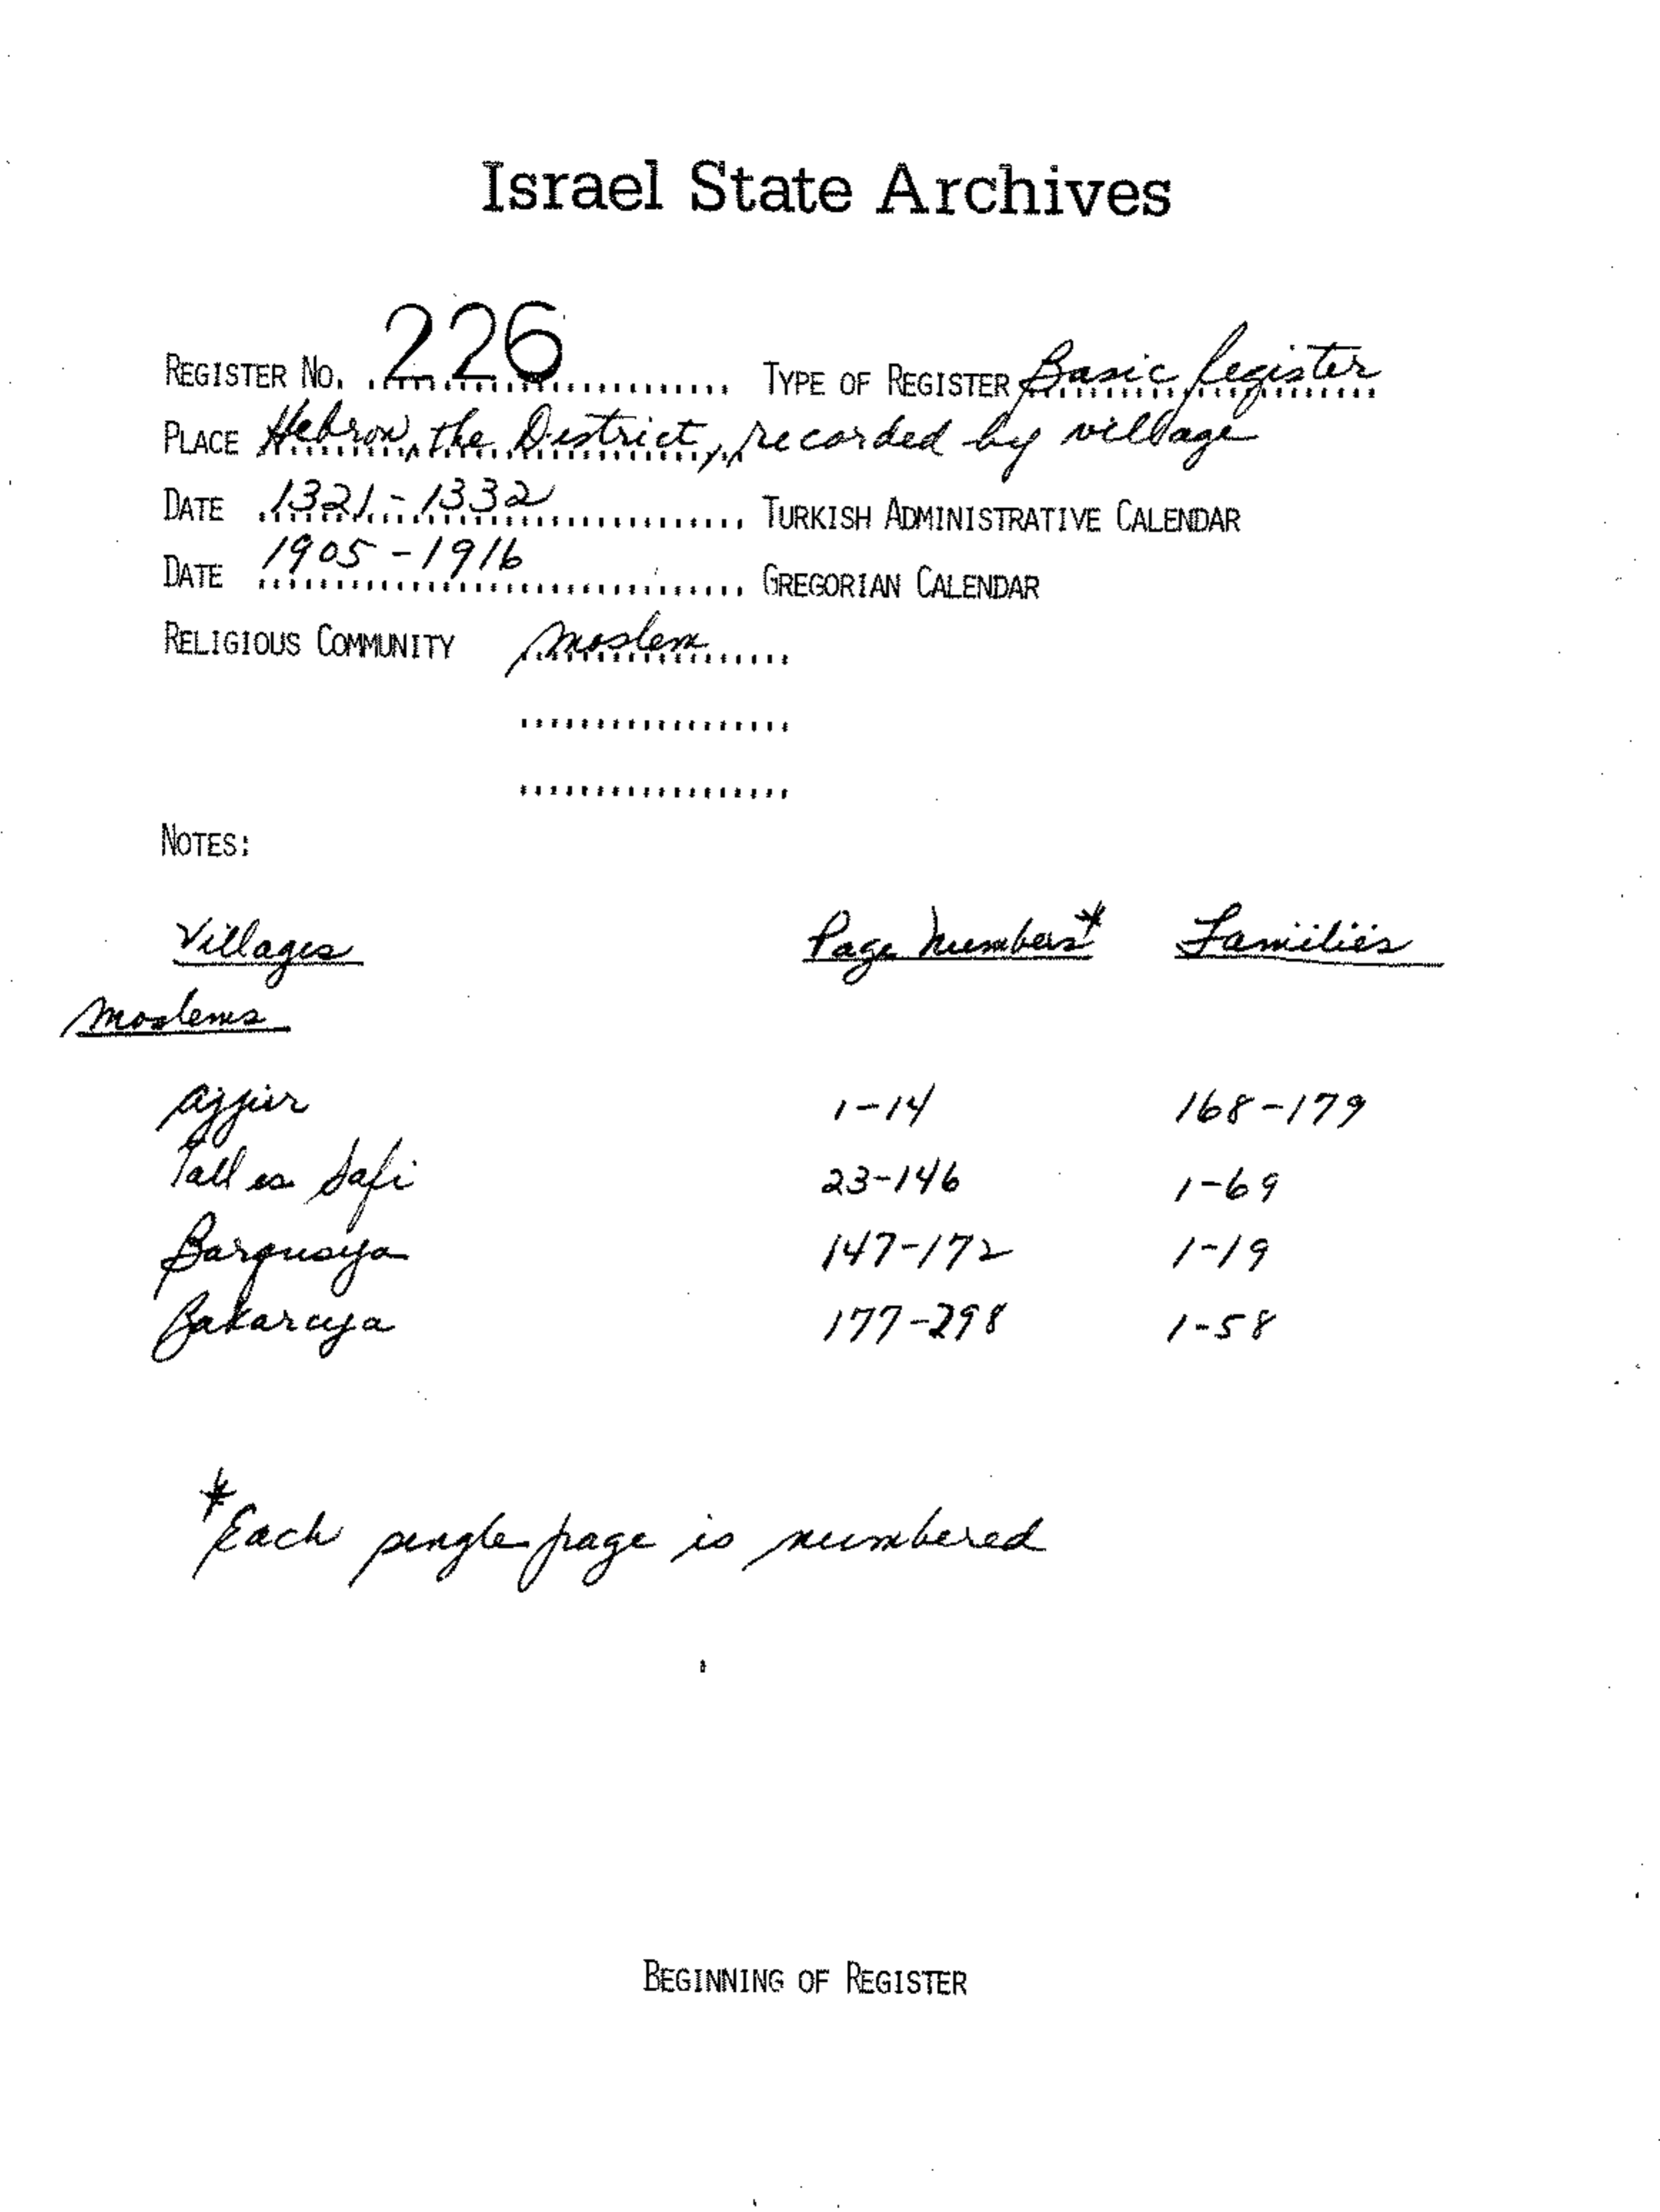 Israel State Archives
REGISTER NO. 226 TYPE OF REGISTER Basic Register
PLACE Hebron, the District, recorded by village
DATE 1321-1332 TURKISH ADMINISTRATIVE CALENDAR
DATE 1905-1916 GREGORIAN CALENDAR
RELIGIOUS COMMUNITY Moslem
NOTES:
Villages Page Numbers* Families
Moslems
Ajjur 1-14 168-179
Tall es Safi 23-146 1-69
Barqusya 147-172 1-19
Zakariya 177-298 1-58
*Each single page is numbered
BEGINNING OF REGISTER